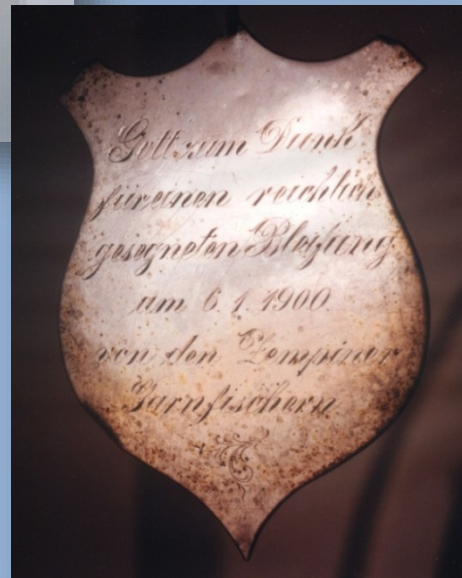 Gott zum Dank
für einen reichlich
gesegneten Bleyzung
am 6. 1. 1900
von den Zempiner
Garnfischern